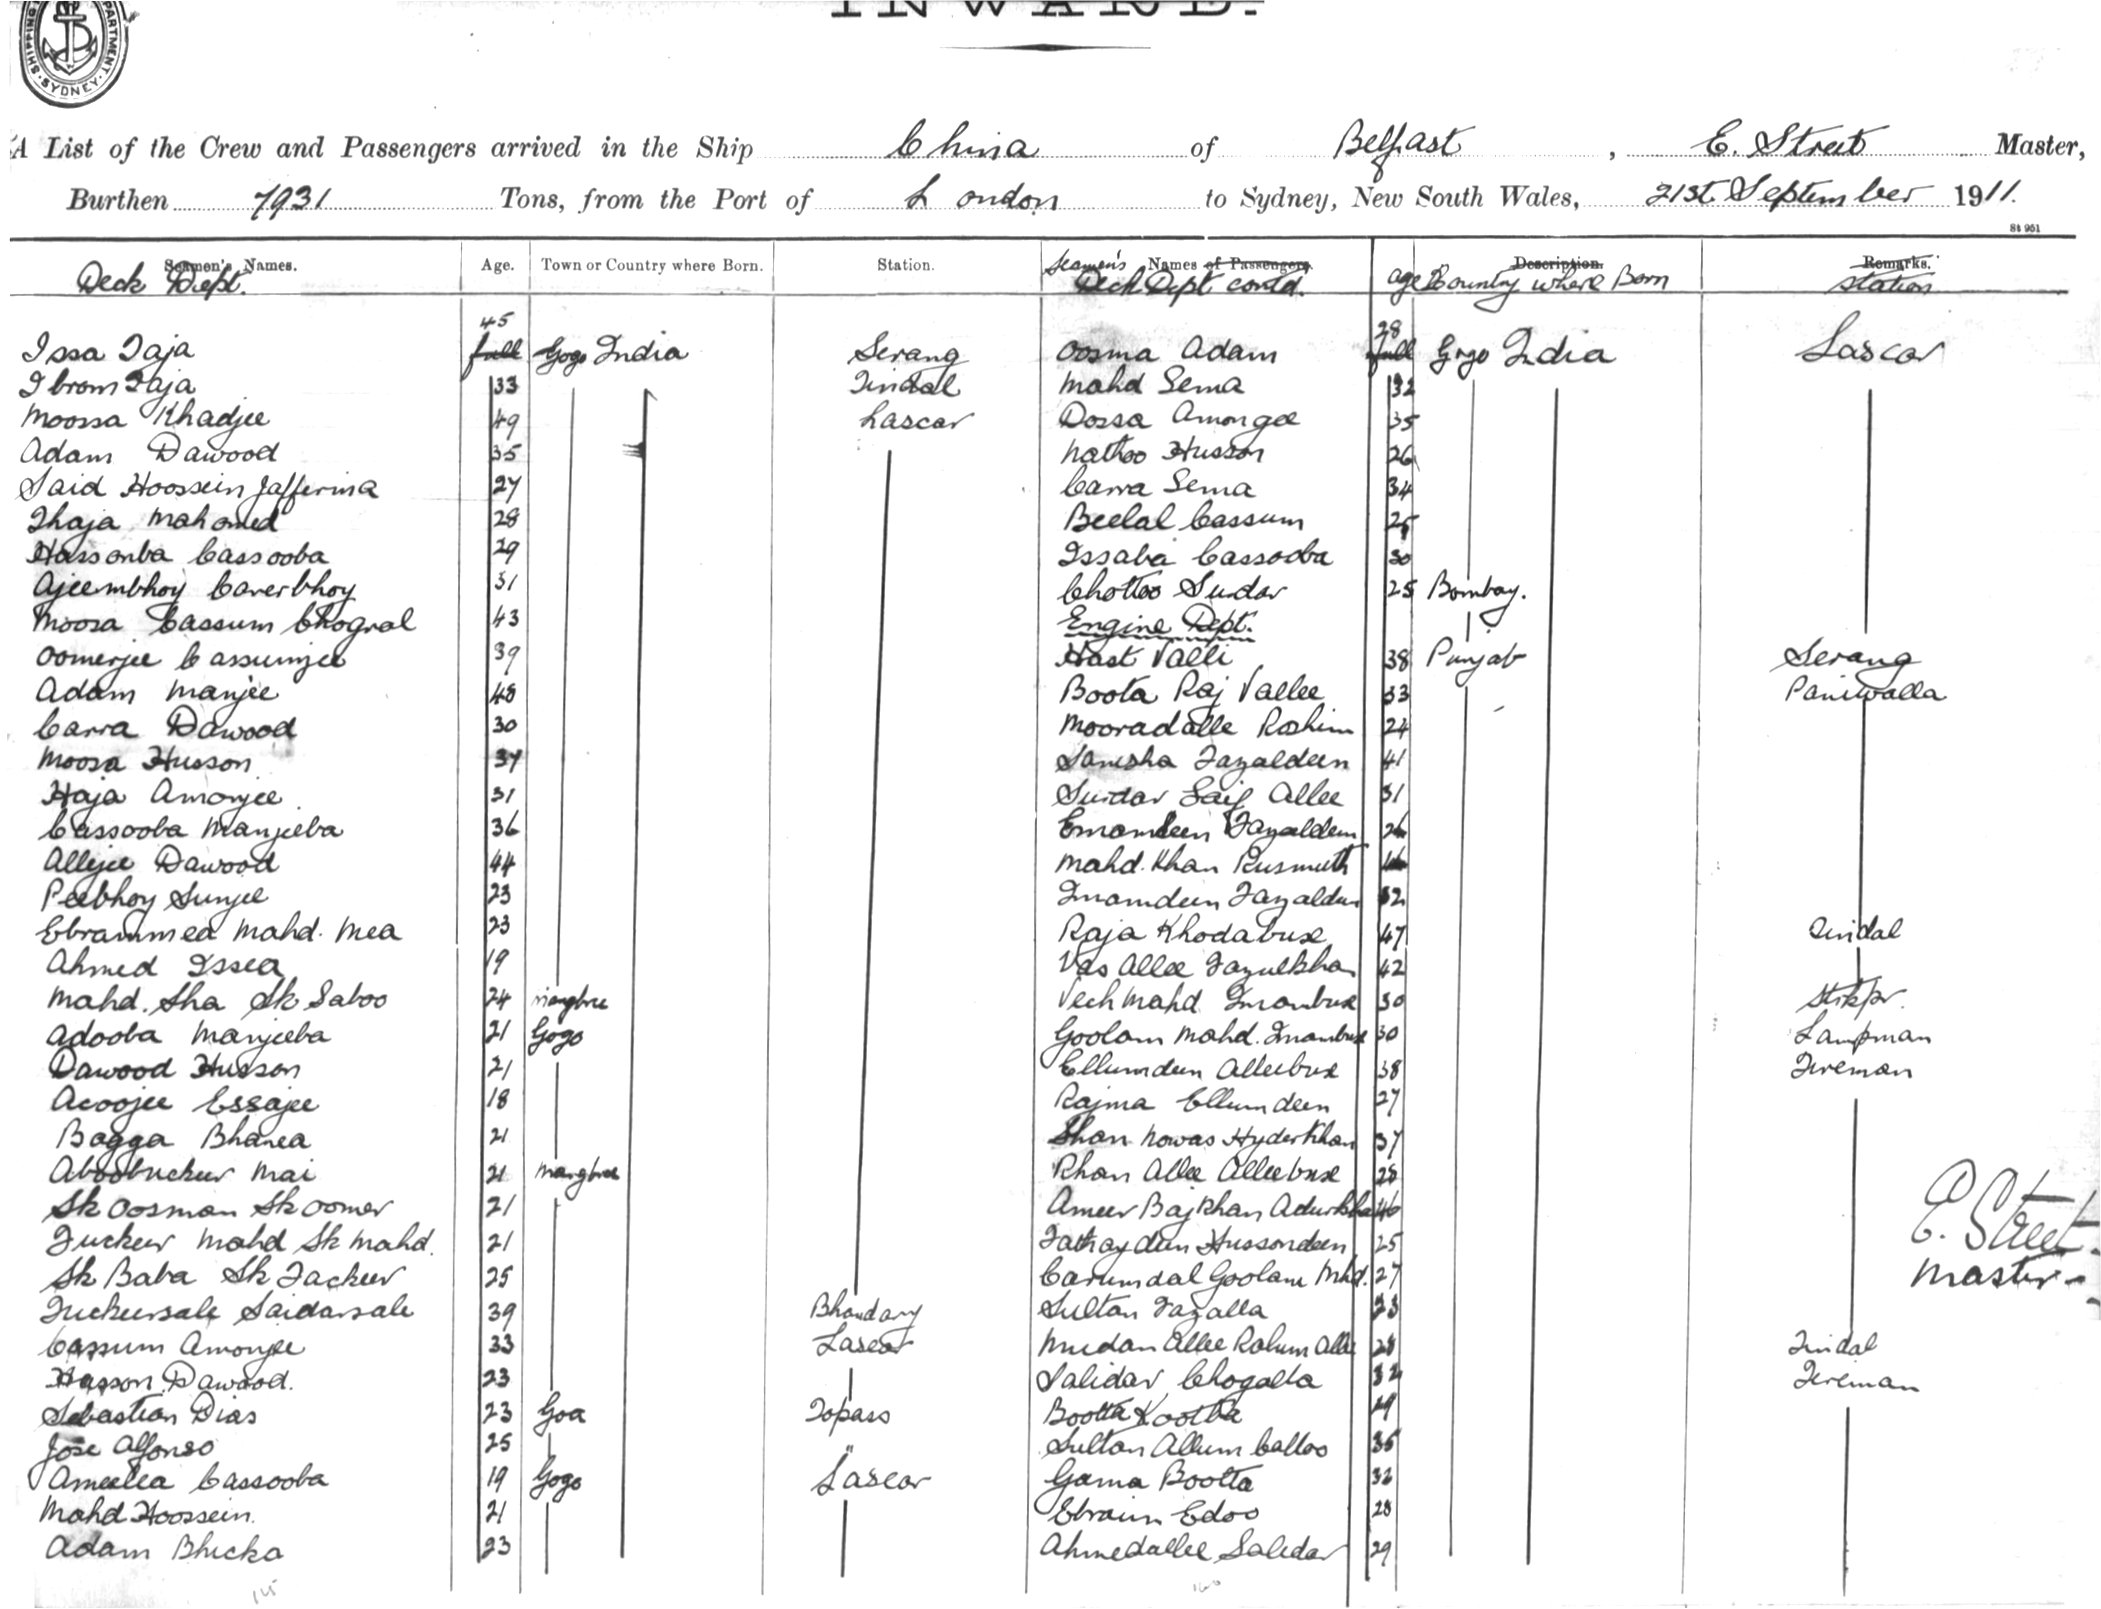 INWARD.
SHIPPING DEPARTMENT SYDNEY
A List of the Crew and Passengers arrived in the Ship China of Belfast, E. Street Master,
Burthen 7931 Tons, from the Port of London to Sydney, New South Wales, 21st September 1911.
St 951
Seamen's Names. Age. Town or Country where Born. Station. Seamen's Names of Passengers. age Country where Born Description. Remarks.
Deck Dept. Deck Dept contd. station
45 28
Issa Taja full Gogo India Serang Oosma Adam full Gogo India Lascar
Ibrom Taja 33 Tindal Mahd Sema 32
Moossa Khadjee 49 Lascar Dossa Amongee 35
Adam Dawood 35 Nathoo Husson 26
Said Hoossein Jafferina 27 Carra Sema 34
Thaja Mahomed 28 Beelal Cassum
Hassonba Cassooba 29 Issaba Cassooba 30
Ajeembhoy Caverbhoy 31 Chottoo Surdar 25 Bombay.
Moosa Cassum Chogral 43 Engine Dept.
Oomerjee Cassumjee 39 Hast Valli 38 Punjab Serang
Adam Manjee 48 Boota Raj Vallee 33 Paniwalla
Carra Dawood 30 Mooradalle Roshim 24
Moosa Husson 37 Sanisha Fazaldeen 41
Haja Amonjee 31 Surdar Saif Allee 31
Cassooba Manjeeba 36 Emamdeen Fazaldeen
Allejee Dawood 44 Mahd. Khan Rusmuth
Peebhoy Sunjee 23 Imamdeen Fazaldeen 32
Ebrammea Mahd. Mea 23 Raja Khodabux 47 Tindal
Ahmed Issea 19 Vas Allee Fazulkhan 42
Mahd. Sha Sk Saboo 24 Mahd Imambux 30
Adooba Manjeeba 21 Gogo Goolam Mahd. Imambux 30 Lampman
Dawood Husson 21 Ellumdeen Alleebux 38 Fireman
Acoojee Essajee 18 Rajma Ellumdeen 27
Bagga Bhanea 21 Shan Nowas Hyderkhan 37
Aboobucker Mai 21 Khan Allee Alleebux 28
Sk Oosman Sk Oomer 21 Ameer Bajkhan 46
Fuckeer Mahd Sk Mahd. 21 Hussondeen 25
E. Street
Sk Baba Sk Fackeer 25 Carumdal Goolam Mhd. 27 Master
Fuckeersale Saidarsale 39 Bhandary Sultan Fazalla 23
Cassum Amonjee 33 Lascar Murdan Allee Rahum Allee 28 Tindal
Hasson Dawood. 23 Salidar Chogatta 32 Fireman
Sebastian Dias 23 Goa Topass Bootta Kootba 29
Jose Alfonso 25 " Sultan Allum Calloo 35
Ameelea Cassooba 19 Gogo Lascar Gama Bootta 32
Mahd Hoossein. 21 Ebraim Edoo 28
Adam Bhicka 23 Ahmedallee Saledar 29